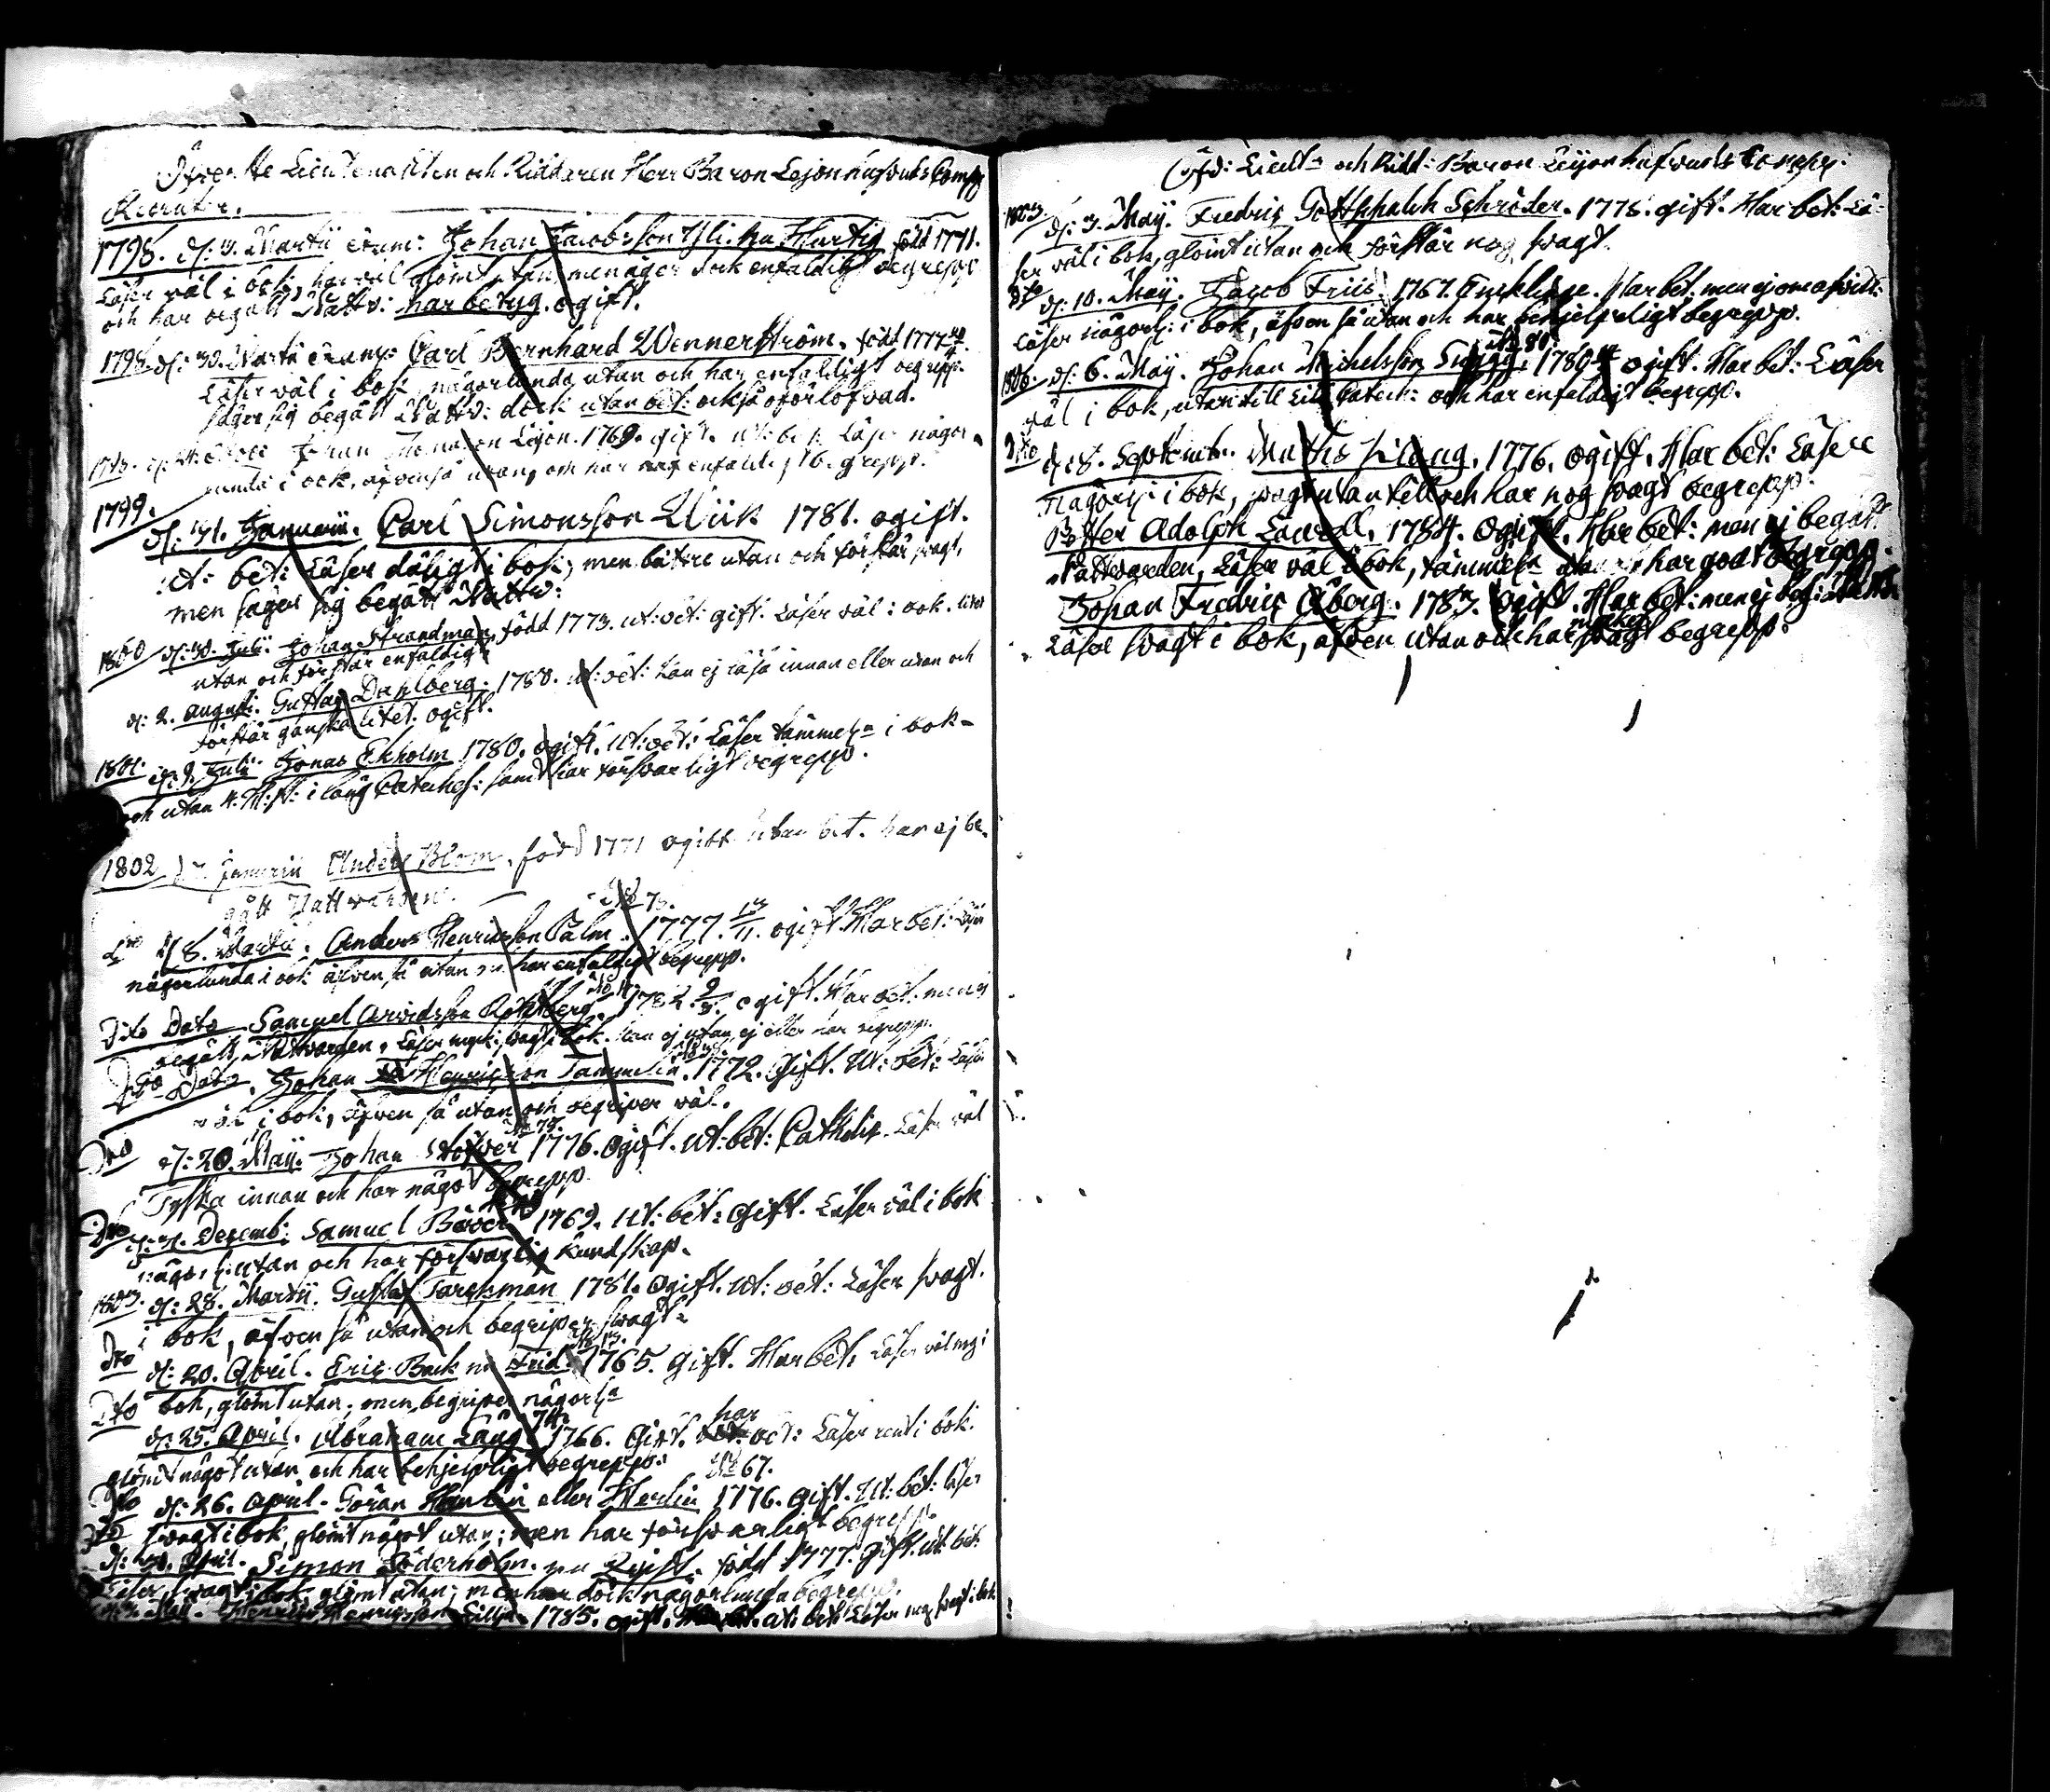 Öfverste Lieutenanten och Riddaren Herr Baron Lejonhufvuds Comp
Recruter.
1798. d: 3. Martii exam: Johan Jacobsson Hurtig född 1771.
Läser väl i bok, har väl glömt utan, men äger dock enfaldigt begrepp
och har begått Nattv: har betyg. ogift.
1798. d: 30. Martii exam: Carl Bernhard Wennerström. född 1777
Läser väl i bok, någorlunda utan och har enfaldigt begrepp.
säger sig begått Nattv: dock utan bet: också oförlofvad.
Johan Thomasson Lejon. 1769. gift. ut: bet: Läser någor-
lunda i bok, äfvenså utan, och har nog enfaldigt begrepp.
1799.
d: 31. Januarii. Carl Simonsson Wiik 1781. ogift.
ut: bet: Läser dåligt i bok, men bättre utan och förstår svagt,
men säger sig begått Nattv:
1800 d: 30. Julii Johan Strandman, född 1773. ut: bet: gift. Läser väl i bok.
utan och förstår enfaldigt
d: 2. Augusti. Gustaf Dahlberg. 1780. ut: bet: kan ej läsa innan eller utan och
förstår ganska litet. ogift.
1801. d: 9. Julii Jonas Ekholm 1780. ogift. ut: bet: Läser tämmel: i bok
och utan 4. H: st: i lång Cateches: samt har försvarligt begrepp.
1802 Januarii Anders Blom. född 1771 ogift utan bet. har ej be-
gått Nattvarden.
No 73.
dito d 8. Martii. Anders Henricsson Palm. 1777. 13/11. ogift. Har bet: Läser
någorlunda i bok äfven så utan och har enfaldigt begrepp.
Dito Dato Samuel Arvidsson 1782. ogift. Har bet. men ej
begått Nattvarden. Läser myck: svagt i bok. kan ej utan, ej eller har begrepp.
Dito Dato. Johan Henricsson Tammelin. 1772. Gift. Ut: bet: Läser
väl i bok, äfven så utan och begriper väl.
Dito d: 20. Maii. Johan Stöfver 1776. Ogift. ut: bet: Catholik. Läser väl
Tyska innan och har något begrepp.
Dito Decemb: Samuel 1769. ut: bet: Gift. Läser väl i bok
någorl: utan och har försvarlig kundskap.
1803. d: 28. Martii. Gustaf Forsman 1781. Ogift. ut: bet: Läser svagt.
i bok, äfven så utan och begriper svagt.
Dito d: 20. April. Eric Back nu Frid. 1765. Gift. Har bet. Läser väl nog i
bok, glömt utan, men begriper någorl:
Dito
d: 25. April. Abraham Lång. 1766. Gift. har bet: Läser rent i bok.
glömt något utan och har behjelpligt begrepp.
No 67.
Dito d: 26. April. Göran Hamlin eller Merlin 1776. Gift. ut: bet: Läser
svagt i bok, glömt något utan; men har försvarligt begrepp
Dito
d: 30. April. Simon Söderholm. nu Qvist. född 1777. Gift. ut: bet:
Läser svagt i bok, glömt utan; men har dock någorlunda begrepp.
Henric Henricsson Lillja 1785. ogift. ut: bet: Läser nog svagt i bok
Öfv: Lieut: och Ridd: Baron Leijonhufvuds Comp:
1803. d: 3. Maij. Fredric Gotthhalch Schröder. 1775. gift. Har bet: Lä-
ser väl i bok, glömt utan och förstår nog svagt.
Dito d: 10. Maij. Jacob Friis. 1767. Enkling. Har bet: men ej om afsked:
Läser någorl: i bok, äfven så utan och har behjelpeligt begrepp.
No 80.
d: 6. Maij. Johan Michelsson Snygg. 1780 ogift. Har bet: Läser
väl i bok, utantill Lilla Catech: och har enfaldigt begrepp.
Dito d: 8. Septemb. Mathis 1776. ogift. Har bet: Läser
någorl: i bok, svagt utantill och har nog svagt begrepp.
Petter Adolph Laurell. 1784. ogift. Har bet: men ej begått
Nattvarden, Läser väl i bok, tämmel: utan och har godt begrepp.
Johan Fredric Åberg. 1783. ogift. Har bet: men ej beg: Nattv:
Läser svagt i bok, äfven utan och har mycket svagt begrepp.